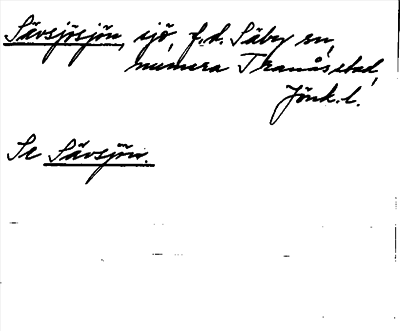 Sävsjösjön, sjö, f.d. Säby sn,
numera Tranås stad,
Jönk. l.
Se Sävsjön.